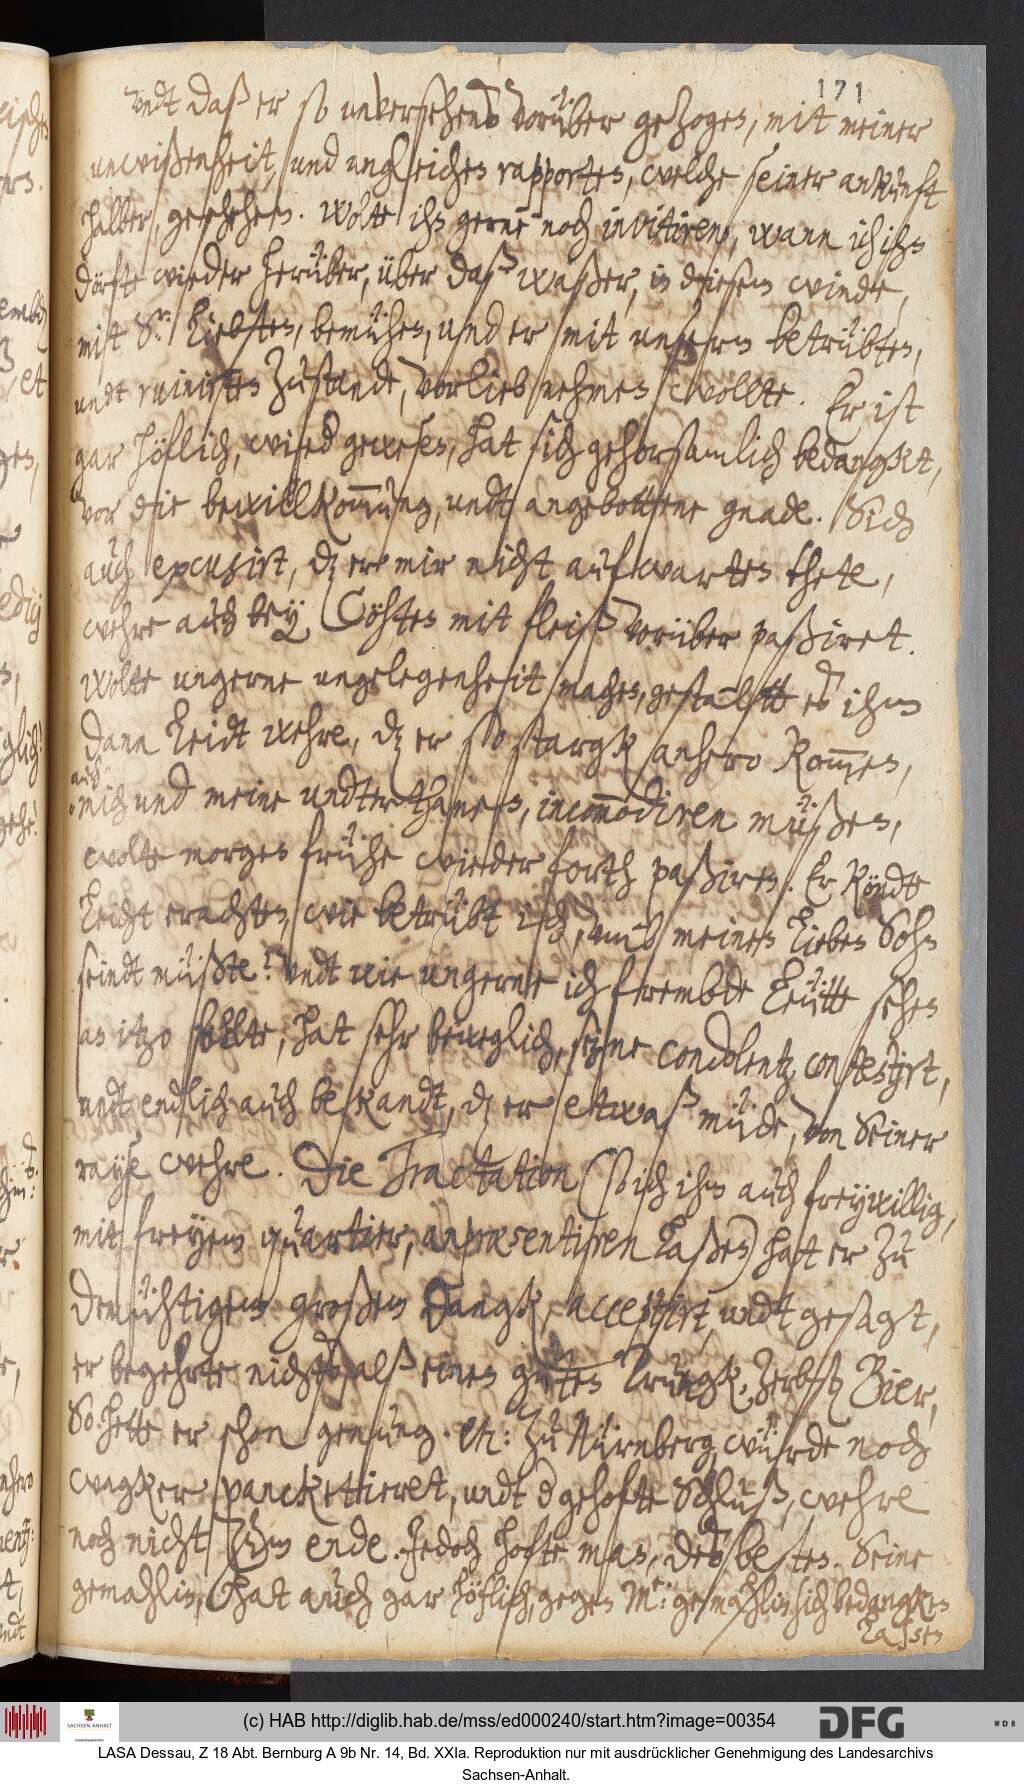 171
undt daß er so unversehens vorüber gezogen, mit meiner
unwißenheit, und ungleichen rapporten, welche seiner ankunft
halber, geschehen. Wolte ihn gerne noch invitiren, wann ich ihn
dörfte wieder herüber, über daß waßer, in diesem winde,
mit S.r Liebsten, bemühen, und er mit unserm betrübten,
undt ruinirten Zustande, vorlieb nehmen wollte. Er ist
gar höflich, wied gewesen, hat sich gehorsamlich bedangket,
vor die bewillkommung, undt angebottene gnade. Sich
auch excusirt, dz er mir nicht aufwarten thete,
wehre auch bey Cöhten mit fleiß vorüber paßiret.
Wolte ungerne ungelegenheit machen, gestalt es ihm
dann Leidt wehre, dz er so stargk anhero kommen,
auch
mich und meine undterthanen, incommodiren müßen,
wolte morgen frühe wieder forth paßiren. Er köndte
Leicht erachten, wie betrübt ich, umb meinen Lieben Sohn
seindt müßte? undt wie ungerne ich frembde Leütte sehen
an itzo sollte, hat sehr beweglich, seine condolentz contestirt,
undt endlich auch bekandt, dz er etwaß müde, von Seiner
rayse wehre. Die Tractation (so ich ihm auch freywillig,
mit freyem quartier, anpræsentiren Laßen) hat er zu
demühtigem großem Dangk, acceptirt, undt gesagt,
er begehrte nichts, alß einen guten Trungk, Zerbster Bier,
So hette er schon genung. etc: Zu Nürnberg, würde noch
wagker panckettieret, undt d gehofte Schluß, wehre
noch nicht zum ende. Jedoch hofte man, des besten. Seine
gemahlin, hat auch gar höflich, gegen M.r: gemahlin sich bedangken
Lassen
(c) HAB http://diglib.hab.de/mss/ed000240/start.htm?image=00354
SACHSEN-ANHALT
DFG
WDB
LASA Dessau, Z 18 Abt. Bernburg A 9b Nr. 14, Bd. XXIa. Reproduktion nur mit ausdrücklicher Genehmigung des Landesarchivs
Sachsen-Anhalt.